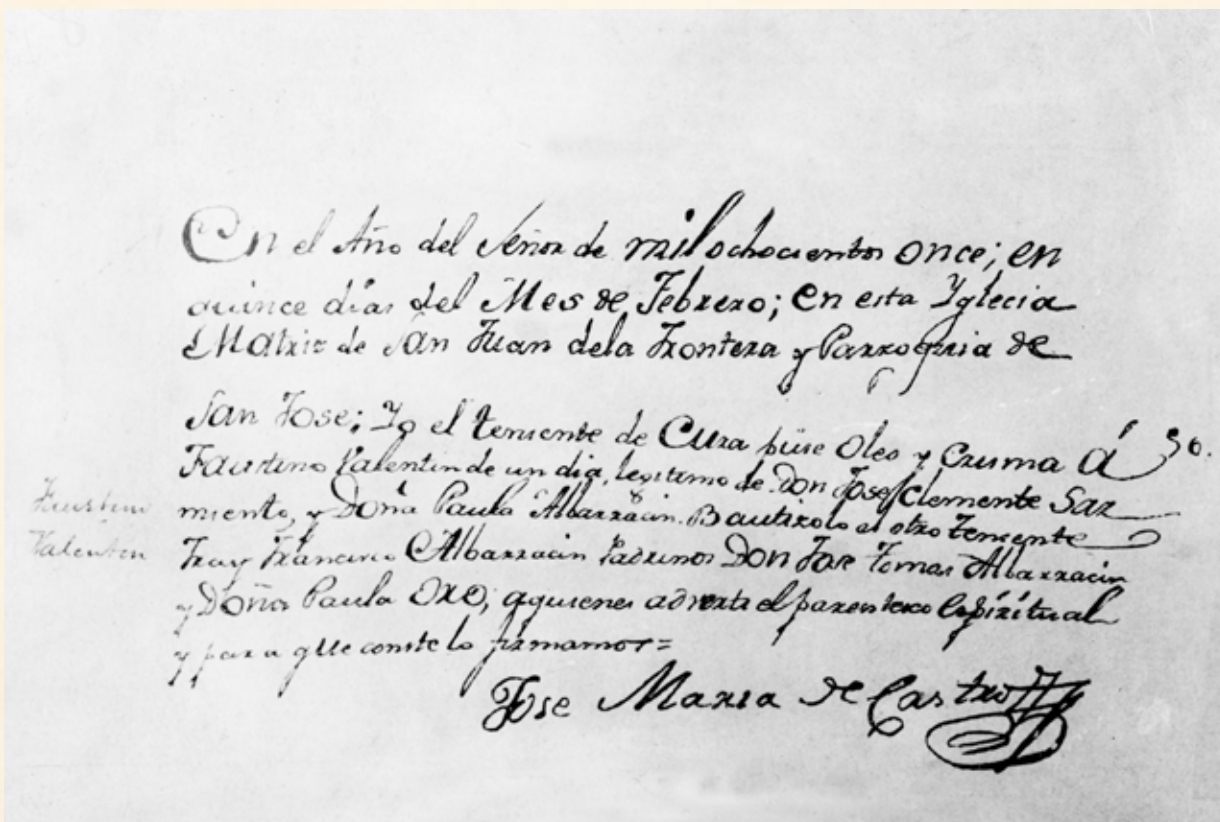 En el Año del Señor de mil ochocientos once; en
quince dias del Mes de Febrero; en esta Yglecia
Matriz de San Juan dela Frontera y Parroquia de
San Jose; Yo el teniente de Cura puse Oleo y Crisma á
Faustino Valentin de un dia, legitimo de Don Jose Clemente Sar
miento, y Doña Paula Albarracin. Bautizolo el otro teniente
Fray Francisco Albarracin Padrinos Don Jose Tomas Albarracin
y Doña Paula Oro, aquienes adverti el parentesco Espiritual
y para que conste lo firmamos=
Jose Maria de Castro
Faustino
Valentin